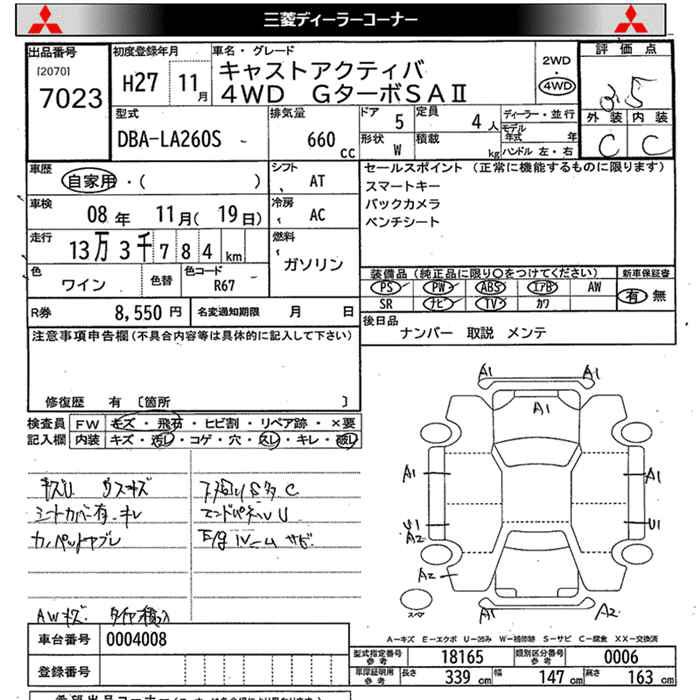 三菱ディーラーコーナー
出品番号 [2070] 7023
初度登録年月 H27 11月
車名・グレード キャストアクティバ
4WD GターボSAⅡ
2WD 4WD
評価点 3.5
外装 内装
C C
型式 DBA-LA260S
排気量 660 cc
ドア 5 定員 4 人
形状 W 積載 kg
ディーラー・並行
モデル年式 年
ハンドル 左・右
車歴 自家用・( )
シフト AT
車検 08年 11月(19日)
冷房 AC
走行 13万3千784 km
燃料 ガソリン
色 ワイン 色替 色コード R67
R券 8,550円 名変通知期限 月 日
セールスポイント (正常に機能するものに限ります)
スマートキー
バックカメラ
ベンチシート
装備品(純正品に限り○をつけてください) 新車保証書
PS PW ABS エアB AW 有 無
SR ナビ TV カワ
後日品
ナンバー 取説 メンテ
注意事項申告欄(不具合内容等は具体的に記入して下さい)
修復歴 有 [箇所 ]
検査員 FW キズ・飛石・ヒビ割・リペア跡・×要
記入欄 内装 キズ・汚レ・コゲ・穴・スレ・キレ・破レ
シートカバー有
エンドパネルU
AWキズ
車台番号 0004008
登録番号
A1 A1
A1
A1 A1
U1 U1
A2
A2
スペア
A1 A2
A-キズ E-エクボ U-凹み W-補修跡 S-サビ C-腐食 XX-交換済
型式指定番号 参考 18165 類別区分番号 参考 0006
車庫証明用 参考 長さ 339 cm 幅 147 cm 高さ 163 cm